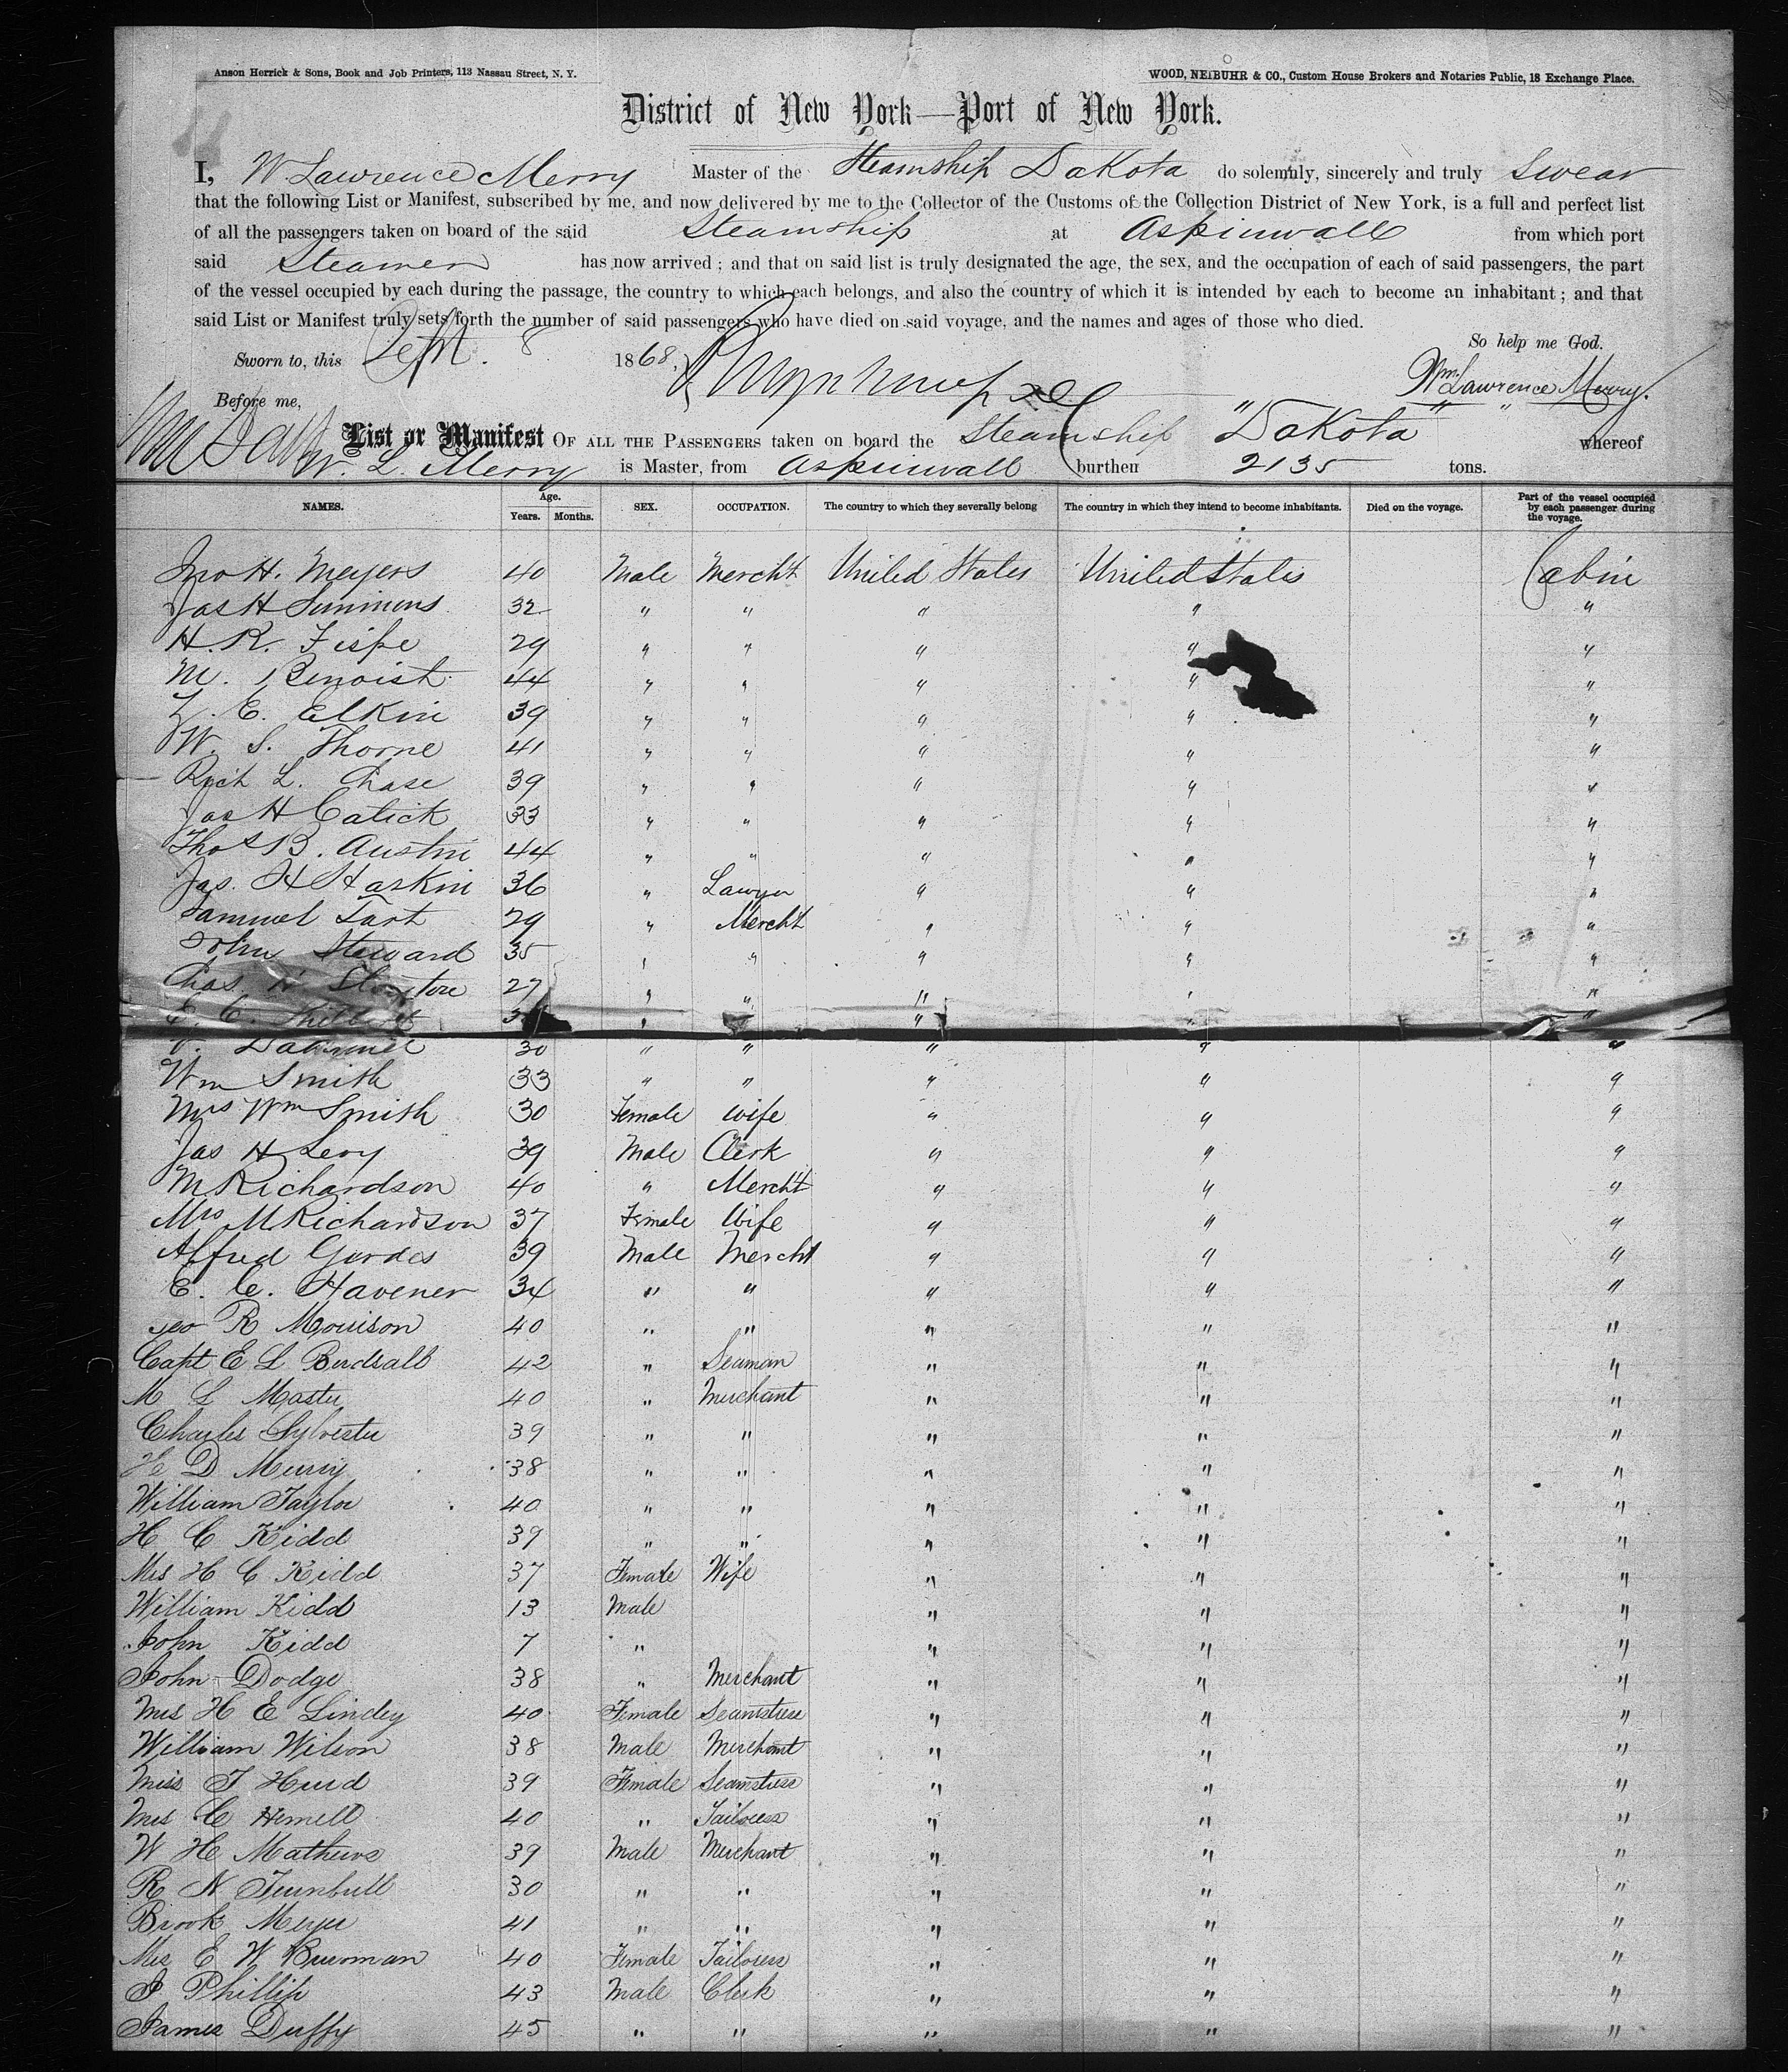 Anson Herrick & Sons, Book and Job Printers, 113 Nassau Street, N. Y. WOOD, NEIBUHR & CO., Custom House Brokers and Notaries Public, 18 Exchange Place.
District of New York—Port of New York.
I, W. Lawrence Merry Master of the Steamship Dakota do solemnly, sincerely and truly swear
that the following List or Manifest, subscribed by me, and now delivered by me to the Collector of the Customs of the Collection District of New York, is a full and perfect list
of all the passengers taken on board of the said Steamship at Aspinwall from which port
said Steamer has now arrived; and that on said list is truly designated the age, the sex, and the occupation of each of said passengers, the part
of the vessel occupied by each during the passage, the country to which each belongs, and also the country of which it is intended by each to become an inhabitant; and that
said List or Manifest truly sets forth the number of said passengers who have died on said voyage, and the names and ages of those who died.
So help me God.
Sworn to, this Sept. 8 1868,
Wm. Lawrence Merry.
Before me,
List or Manifest OF ALL THE PASSENGERS taken on board the Steamship "Dakota" whereof
W. L. Merry is Master, from Aspinwall burthen 2135 tons.
NAMES. Age. Years. Months. SEX. OCCUPATION. The country to which they severally belong The country in which they intend to become inhabitants. Died on the voyage. Part of the vessel occupied by each passenger during the voyage.
Jno H. Meyers 40 Male Mercht United States United States Cabin
Jas H Simmons 32 " " " " "
H. R. 29 " " " " "
M. Benoist 44 " " " " "
L. E. Elkin 39 " " " " "
W. S. Thorne 41 " " " " "
Rich L. Chase 39 " " " " "
Jas H Catick 33 " " " " "
Thos B. Austin 44 " " " " "
Jas. H Haskin 36 " Lawyer " " "
Samuel Tart 29 " Mercht " " "
John Steward 35 " " " " "
Chas 27 " " " " "
E. C. " " " " "
30 " " " " "
Wm Smith 33 " " " " "
Mrs Wm Smith 30 Female Wife " " "
Jas H Levy 39 Male Clerk " " "
M Richardson 40 " Mercht " " "
Mrs M Richardson 37 Female Wife " " "
Alfred Gerdes 39 Male Mercht " " "
E. C. Havener 34 " " " " "
Geo R Morrison 40 " " " " "
Capt E L Birdsall 42 " Seaman " " "
M L Master 40 " Merchant " " "
Charles Sylvester 39 " " " " "
H D Murry 38 " " " " "
William Taylor 40 " " " " "
H C Kidd 39 " " " " "
Mrs H C Kidd 37 Female Wife " " "
William Kidd 13 Male " " "
John Kidd 7 " " " "
John Dodge 38 " Merchant " " "
Mrs H E Lindey 40 Female Seamstress " " "
William Wilson 38 Male Merchant " " "
Miss T Hurd 39 Female Seamstress " " "
Mrs C Hemell 40 " Tailoress " " "
W H Mathews 39 Male Merchant " " "
R N Turnbull 30 " " " " "
Brook Meyer 41 " " " " "
Mrs E W Burman 40 Female Tailoress " " "
J Phillip 43 Male Clerk " " "
James Duffy 45 " " " " "